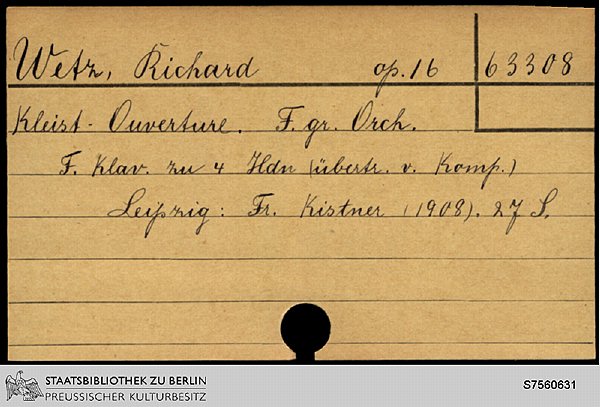 Wetz, Richard op. 16 63308
Kleist-Ouverture. F. gr. Orch.
F. Klav. zu 4 Hdn (übertr. v. Komp.)
Leipzig: Fr. Kistner (1908). 27 S.
STAATSBIBLIOTHEK ZU BERLIN
PREUSSISCHER KULTURBESITZ
S7560631